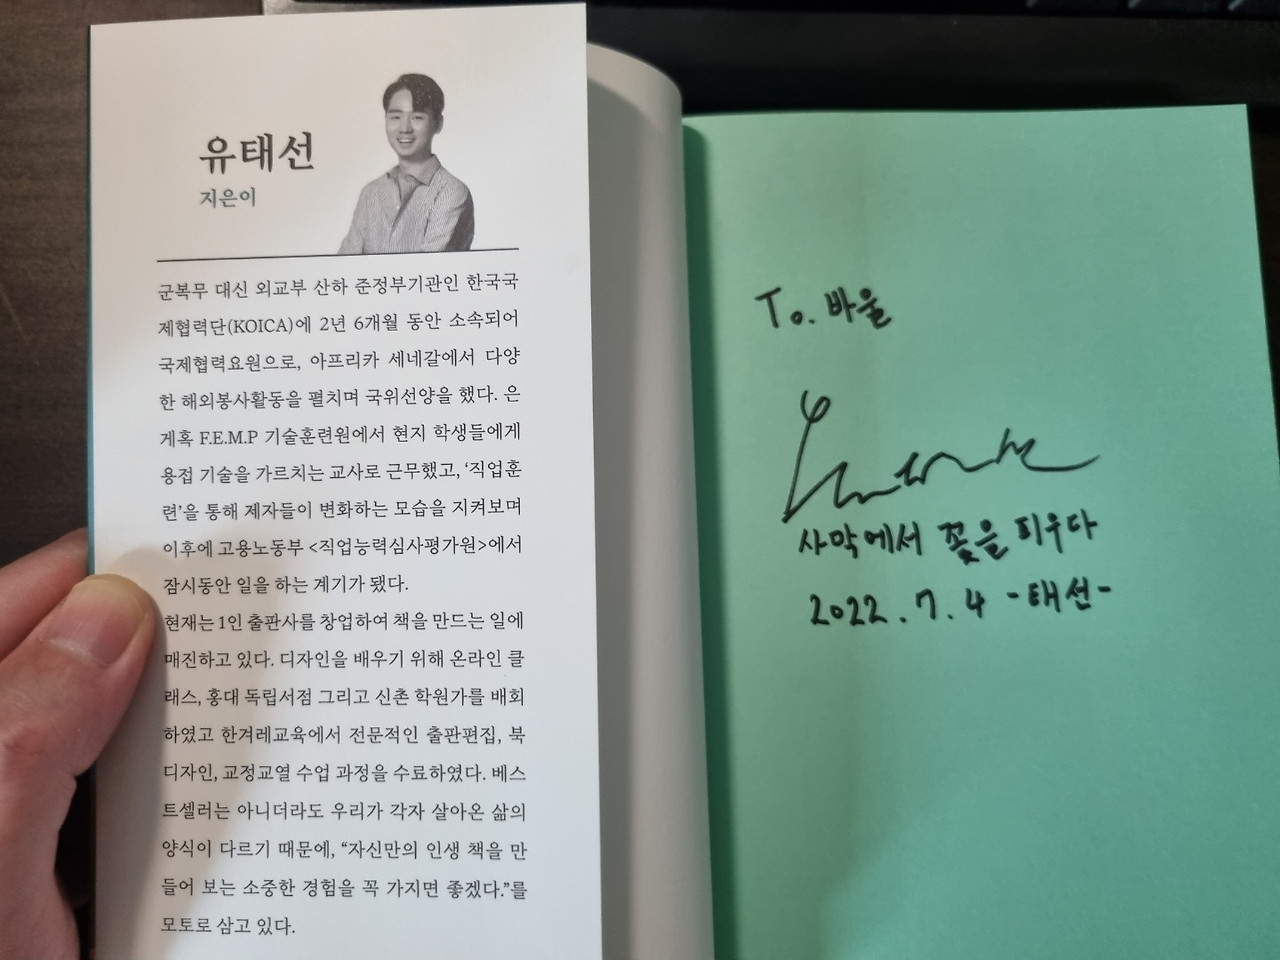 유태선
지은이
군복무 대신 외교부 산하 준정부기관인 한국국
제협력단(KOICA)에 2년 6개월 동안 소속되어
국제협력요원으로, 아프리카 세네갈에서 다양
한 해외봉사활동을 펼치며 국위선양을 했다. 은
게혹 F.E.M.P 기술훈련원에서 현지 학생들에게
용접 기술을 가르치는 교사로 근무했고, ‘직업훈
련’을 통해 제자들이 변화하는 모습을 지켜보며
이후에 고용노동부 <직업능력심사평가원>에서
잠시동안 일을 하는 계기가 됐다.
현재는 1인 출판사를 창업하여 책을 만드는 일에
매진하고 있다. 디자인을 배우기 위해 온라인 클
래스, 홍대 독립서점 그리고 신촌 학원가를 배회
하였고 한겨레교육에서 전문적인 출판편집, 북
디자인, 교정교열 수업 과정을 수료하였다. 베스
트셀러는 아니더라도 우리가 각자 살아온 삶의
양식이 다르기 때문에, “자신만의 인생 책을 만
들어 보는 소중한 경험을 꼭 가지면 좋겠다.”를
모토로 삼고 있다.
To. 바울
사막에서 꽃을 피우다
2022. 7. 4 -태선-